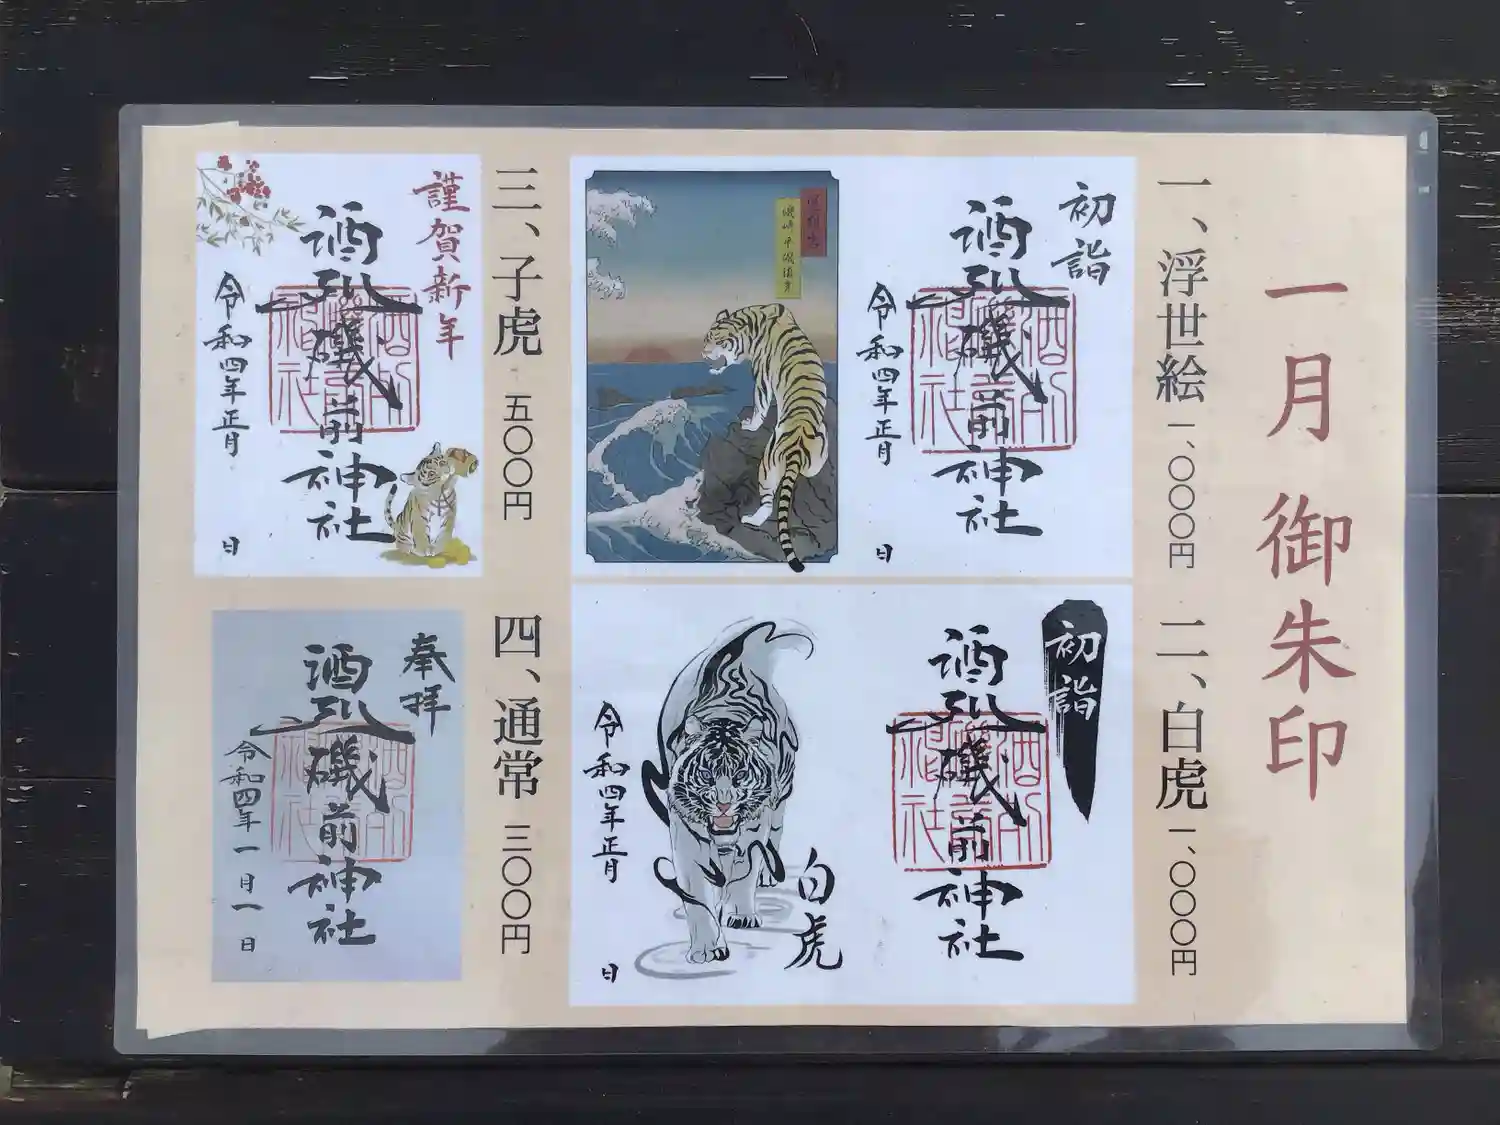 一月 御朱印
一、浮世絵 一、〇〇〇円
二、白虎 一、〇〇〇円
初詣
酒列磯前神社
令和四年正月 日
初詣
酒列磯前神社
白虎
令和四年正月 日
三、子虎 五〇〇円
四、通常 三〇〇円
謹賀新年
酒列磯前神社
令和四年正月 日
奉拝
酒列磯前神社
令和四年一月一日